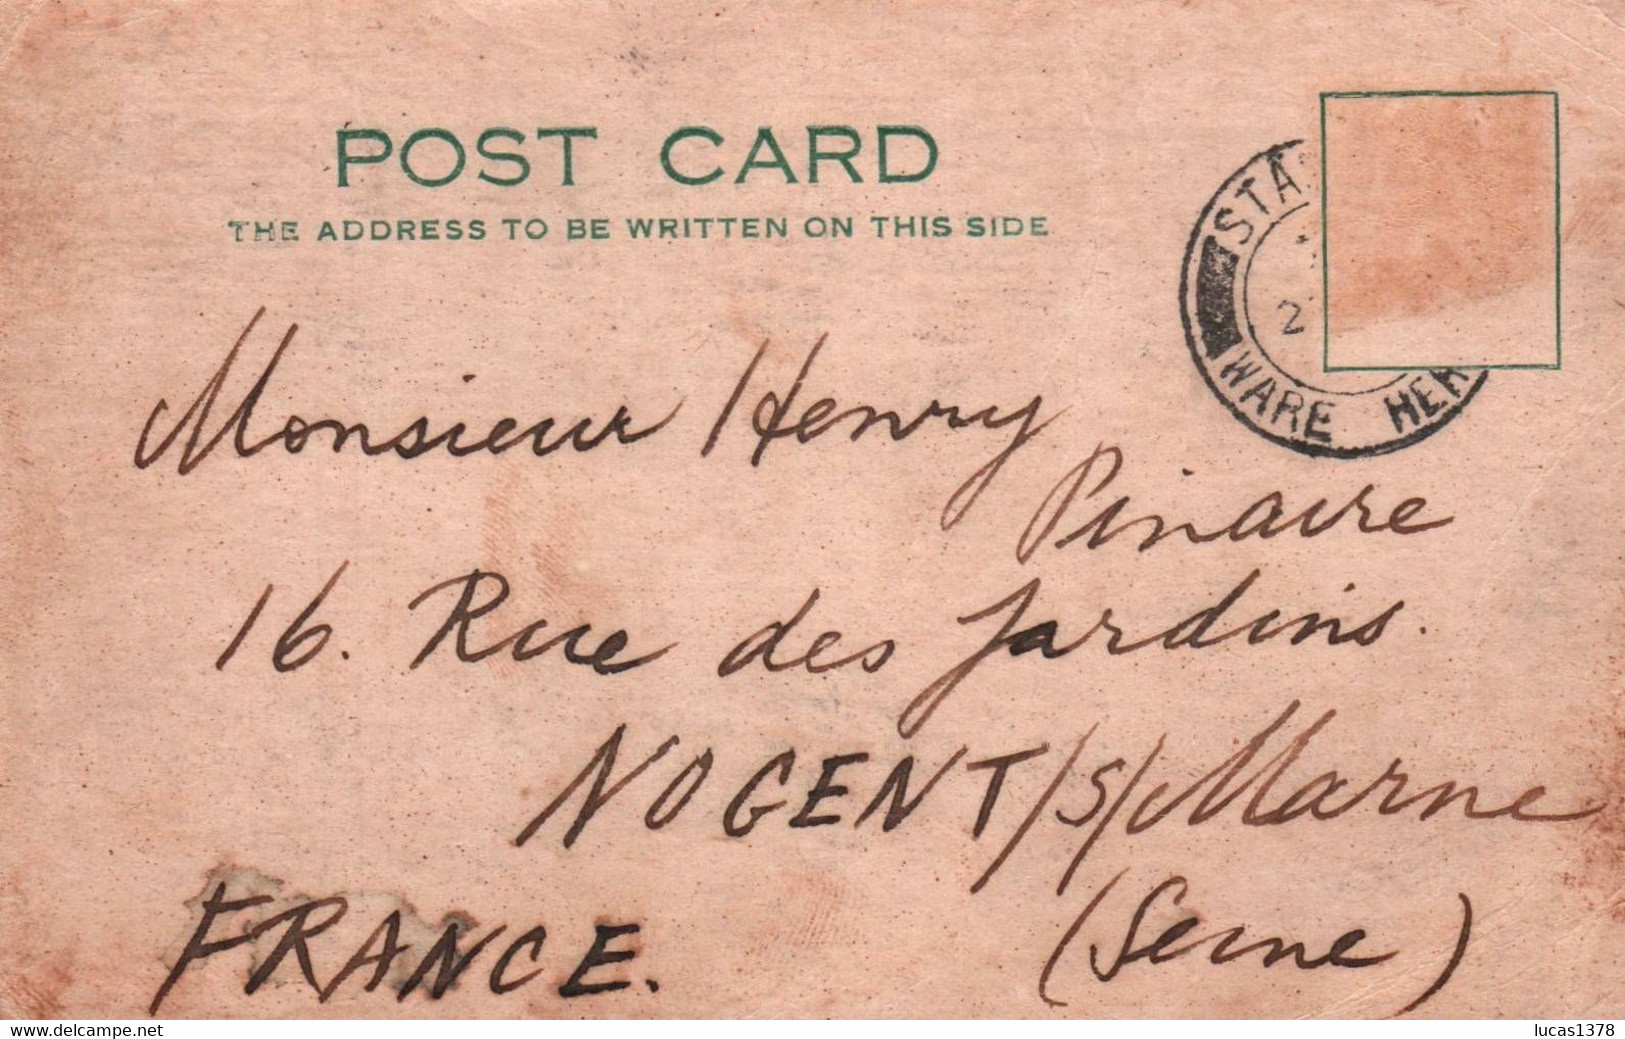 POST CARD
THE ADDRESS TO BE WRITTEN ON THIS SIDE
WARE HER
Monsieur Henry
Pinaire
16. Rue des Jardins.
NOGENT/s/Marne
(Seine)
FRANCE.
www.delcampe.net
lucas1378